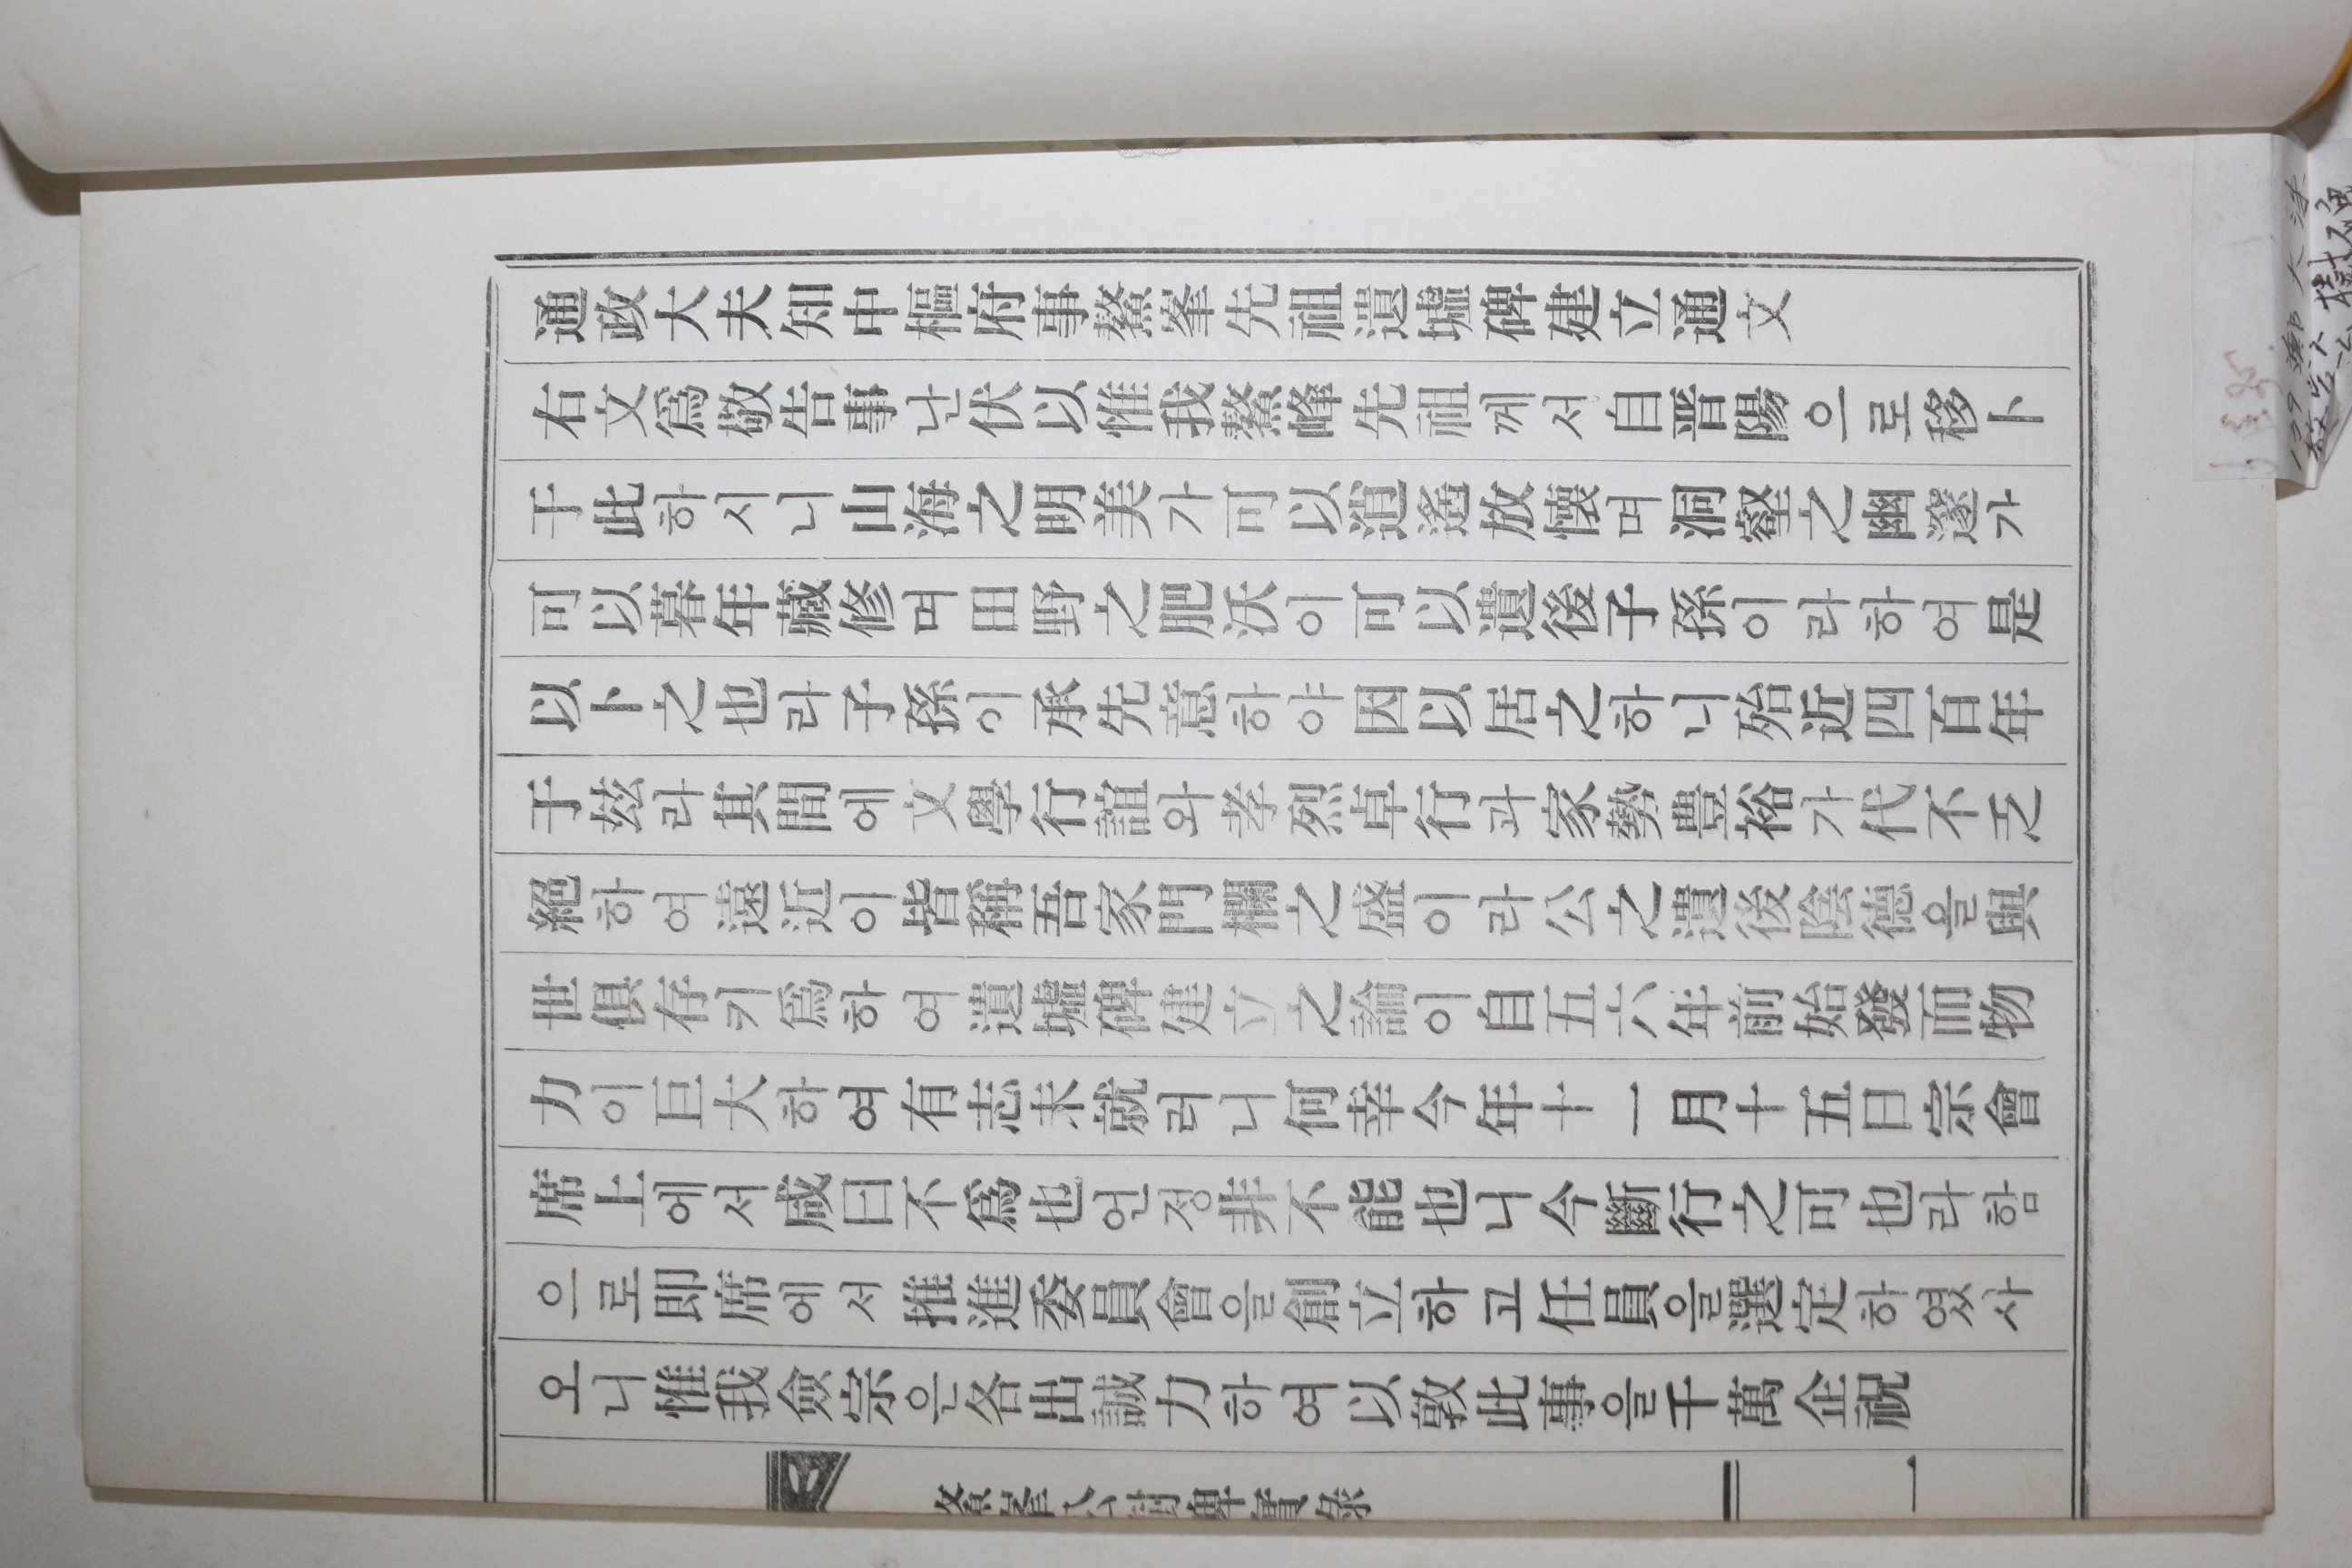 通政大夫知中樞府事鰲峯先祖遺墟碑建立通文
右文爲敬告事난伏以惟我鰲峰先祖께서自晋陽으로移卜
于此하시니山海之明美가可以逍遙放懷며洞壑之幽邃가
可以暮年藏修며田野之肥沃이可以遺後子孫이라하여是
以卜之也라子孫이承先意하야因以居之하니殆近四百年
于玆라其間에文學行誼와孝烈卓行과家勢豊裕가代不乏
絕하여遠近이皆稱吾家門欄之盛이라公之遺後陰德을與
世俱存키爲하여遺墟碑建立之論이自五六年前始發而物
力이巨大하여有志未就러니何幸今年十一月十五日宗會
席上에서咸曰不爲也언정非不能也니今斷行之可也라함
으로即席에서推進委員會을創立하고任員을選定하였사
오니惟我僉宗은各出誠力하여以敦此事을千萬企祝
鰲峯公樹碑實錄
一
139 鄭大洙
樹碑